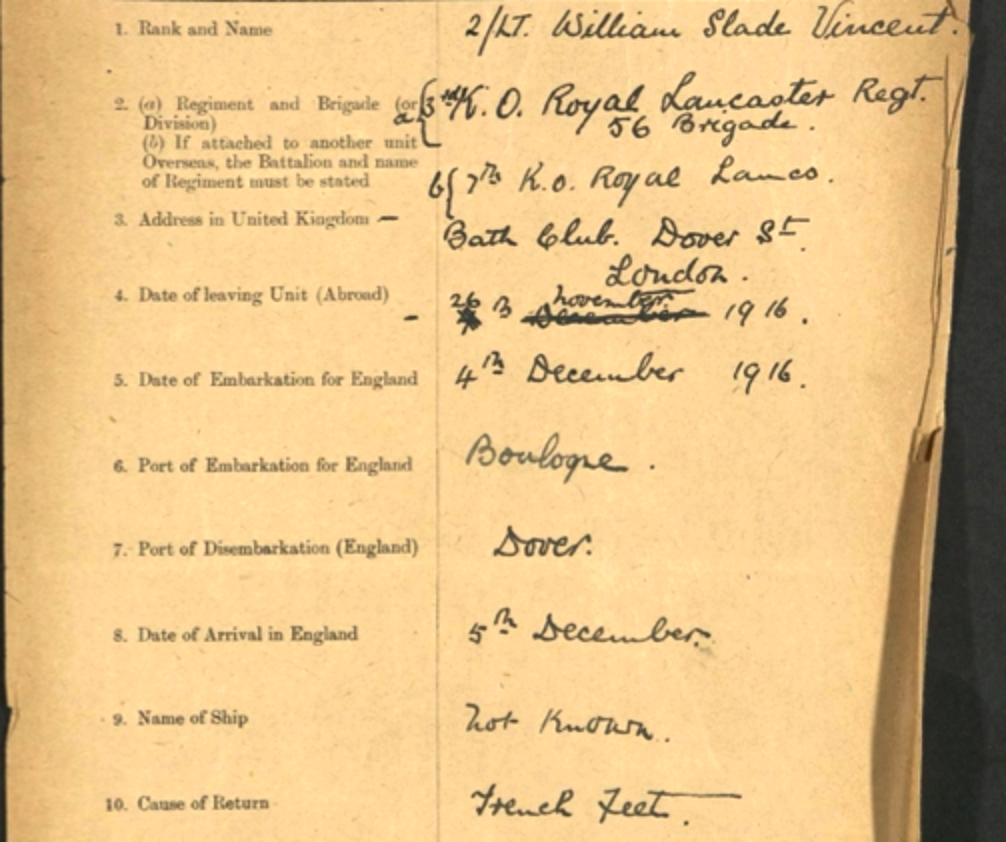 1. Rank and Name 2/LT. William Slade Vincent.
2. (a) Regiment and Brigade (or Division) a { 3rd K. O. Royal Lancaster Regt.
56 Brigade.
(b) If attached to another unit Overseas, the Battalion and name of Regiment must be stated b { 7th K.O. Royal Lancs.
3. Address in United Kingdom — Bath Club. Dover St.
London.
4. Date of leaving Unit (Abroad) - 26 th November December 1916.
5. Date of Embarkation for England 4th December 1916.
6. Port of Embarkation for England Boulogne.
7. Port of Disembarkation (England) Dover.
8. Date of Arrival in England 5th December.
9. Name of Ship not Known.
10. Cause of Return Trench Feet.